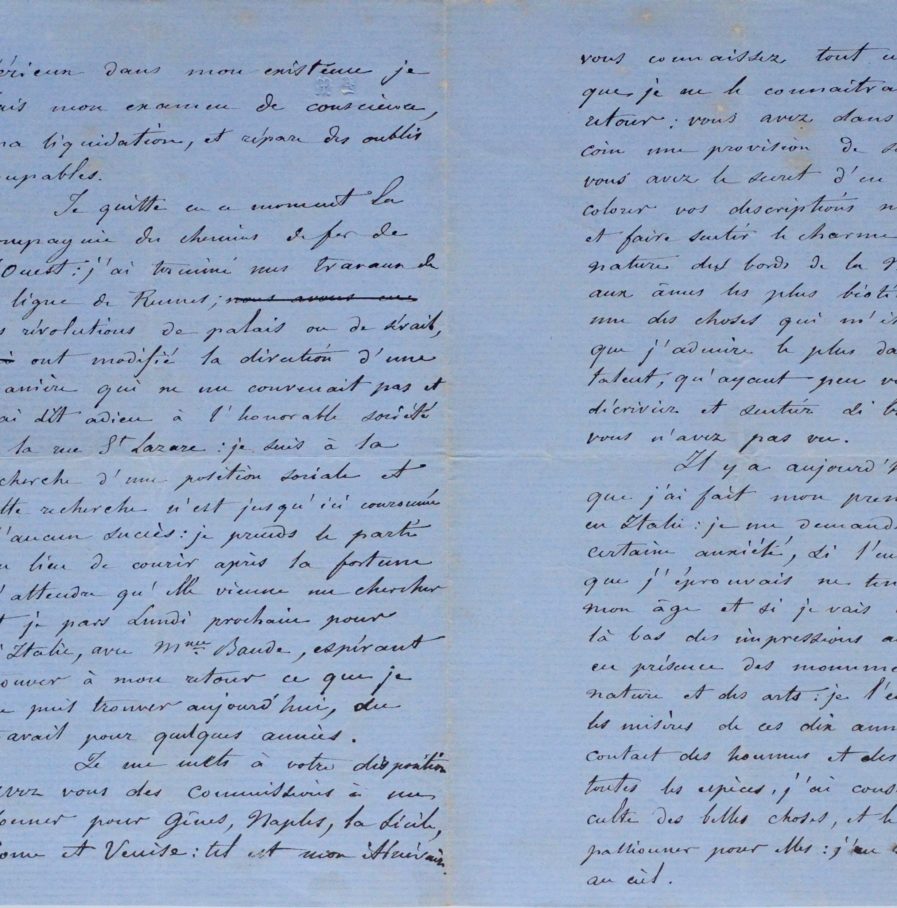 érieur dans mon existence je
fais mon examen de conscience,
ma liquidation, et répare des oublis
coupables.
Je quitte en ce moment la
Compagnie des chemins de fer de
l'Ouest : j'ai terminé mes travaux de
ligne de Rennes ; nous avons eu
s révolutions de palais ou de sérail,
qui ont modifié la direction d'une
manière qui ne me convenait pas et
j'ai dit adieu à l'honorable société
la rue St Lazare : je suis à la
recherche d'une position sociale et
cette recherche n'est jusqu'ici couronnée
d'aucun succès : je prends le parti
au lieu de courir après la fortune
d'attendre qu'elle vienne me chercher
et je pars Lundi prochain pour
l'Italie, avec Mme Baude, espérant
trouver à mon retour ce que je
ne puis trouver aujourd'hui, du
travail pour quelques années.
Je me mets à votre disposition
avez vous des commissions à me
donner pour Gênes, Naples, la Sicile,
Rome et Venise : tel est mon itinéraire.
vous connaissez tout ce
que je ne le connaitra
retour : vous avez dans
coin une provision de s
vous avez le secret d'en
colorer vos descriptions
et faire sentir le charme
nature des bords de la
aux âmes les plus béoti
une des choses qui m'i
que j'admire le plus da
talent, qu'ayant peu v
décriviez et sentiez si b
vous n'avez pas vu.
Il y a aujourd'h
que j'ai fait mon prem
en Italie : je me demand
certaine anxiété, si l'en
que j'éprouvais ne ten
mon âge et si je vais
là bas des impressions a
en présence des monume
nature et des arts : je l'e
les misères de ces dix ann
contact des hommes et des
toutes les espèces, j'ai cons
culte des belles choses, et le
passionner pour elles : j'en
au ciel.